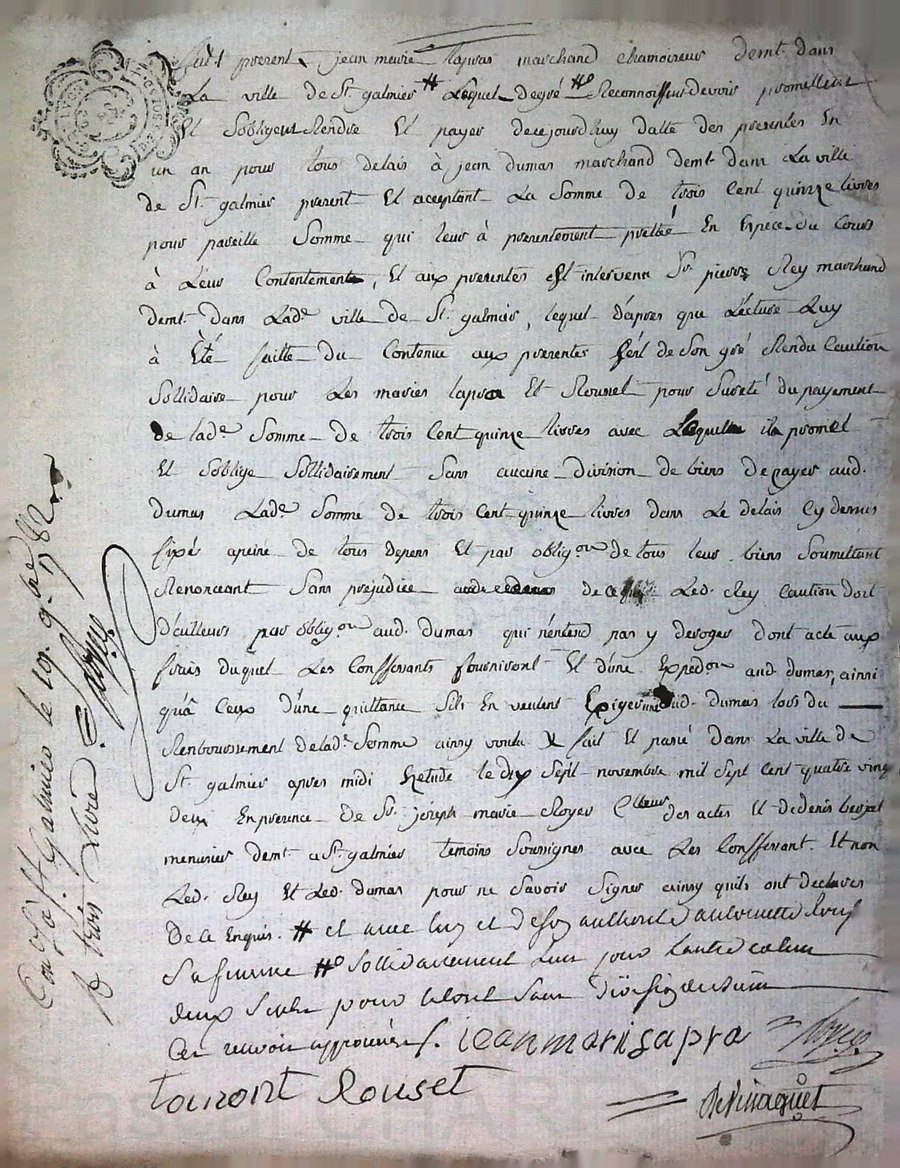 fut present jean marie lapras marchand chamoiseur demt. dans
La ville de St. galmier # Lequel degré #o Reconnoissent devoir promettent
Et Sobligent Rendre Et payer decejourdhuy datte des presentes En
un an pour tous delais à jean dumas marchand demt. dans La ville
de St. galmier present Et aceptant La Somme de trois Cent quinze livres
pour pareille Somme qui leur à presentement prettée En Espece du Cours
à Leur Contentement, Et aux presentes Est intervenu Sr. pierre Rey marchand
demt. dans Lade. ville de St. galmier, lequel d'apres que Lécture Luy
à Été faitte du Contenue aux presentes sest de Son gré Rendu Caution
Sollidaire pour Les maries lapra Et Rousset pour Sureté du payement
de lade. Somme de trois Cent quinze livres avec Lesquels il promet
Et Soblige Sollidairement Sans aucune division de biens de payer aud.
dumas Lade. Somme de trois Cent quinze livres dans Le delais Cy dessus
fixés apeine de tous depens Et par obligon. de tous leur biens Soumettant
Renonceant Sans prejudice de ce Led. Rey Caution doit
d'ailleurs par obligon. aud. dumas qui n'entend pas y deroger dont acte aux
frais duquel Les Conffessants fourniront Et d'une Expedon. aud dumas, ainsi
qu'à Ceux d'une quittance Sils En veulent Exiger dud. dumas lors du
Remboursement delade. Somme ainsy voulu fait Et passé dans La ville de
St. galmier apres midi Hetude le dix Sept novembre mil Sept Cent quatre vingt
deux En presence de Sr. joseph marie Royer des actes Et de denis
menusier demt. a St. galmier temoins Soussignes avec Les Conffessant. Et non
Led. Rey Et Led. dumas pour ne Savoir Signer ainsy quils ont declares
De ce Enquis. # et avec luy et de son authorité antoinette Rousset
Sa femme #o Sollidairement Lun pour Lautre
deux Seul pour le tout Sans division
Ces renvois approuvés. jean mari lapra Royer
toinont Rouset
De Vinaguet
Conlé à St. Galmier le 19. 9bre. 1782
R trois Livre